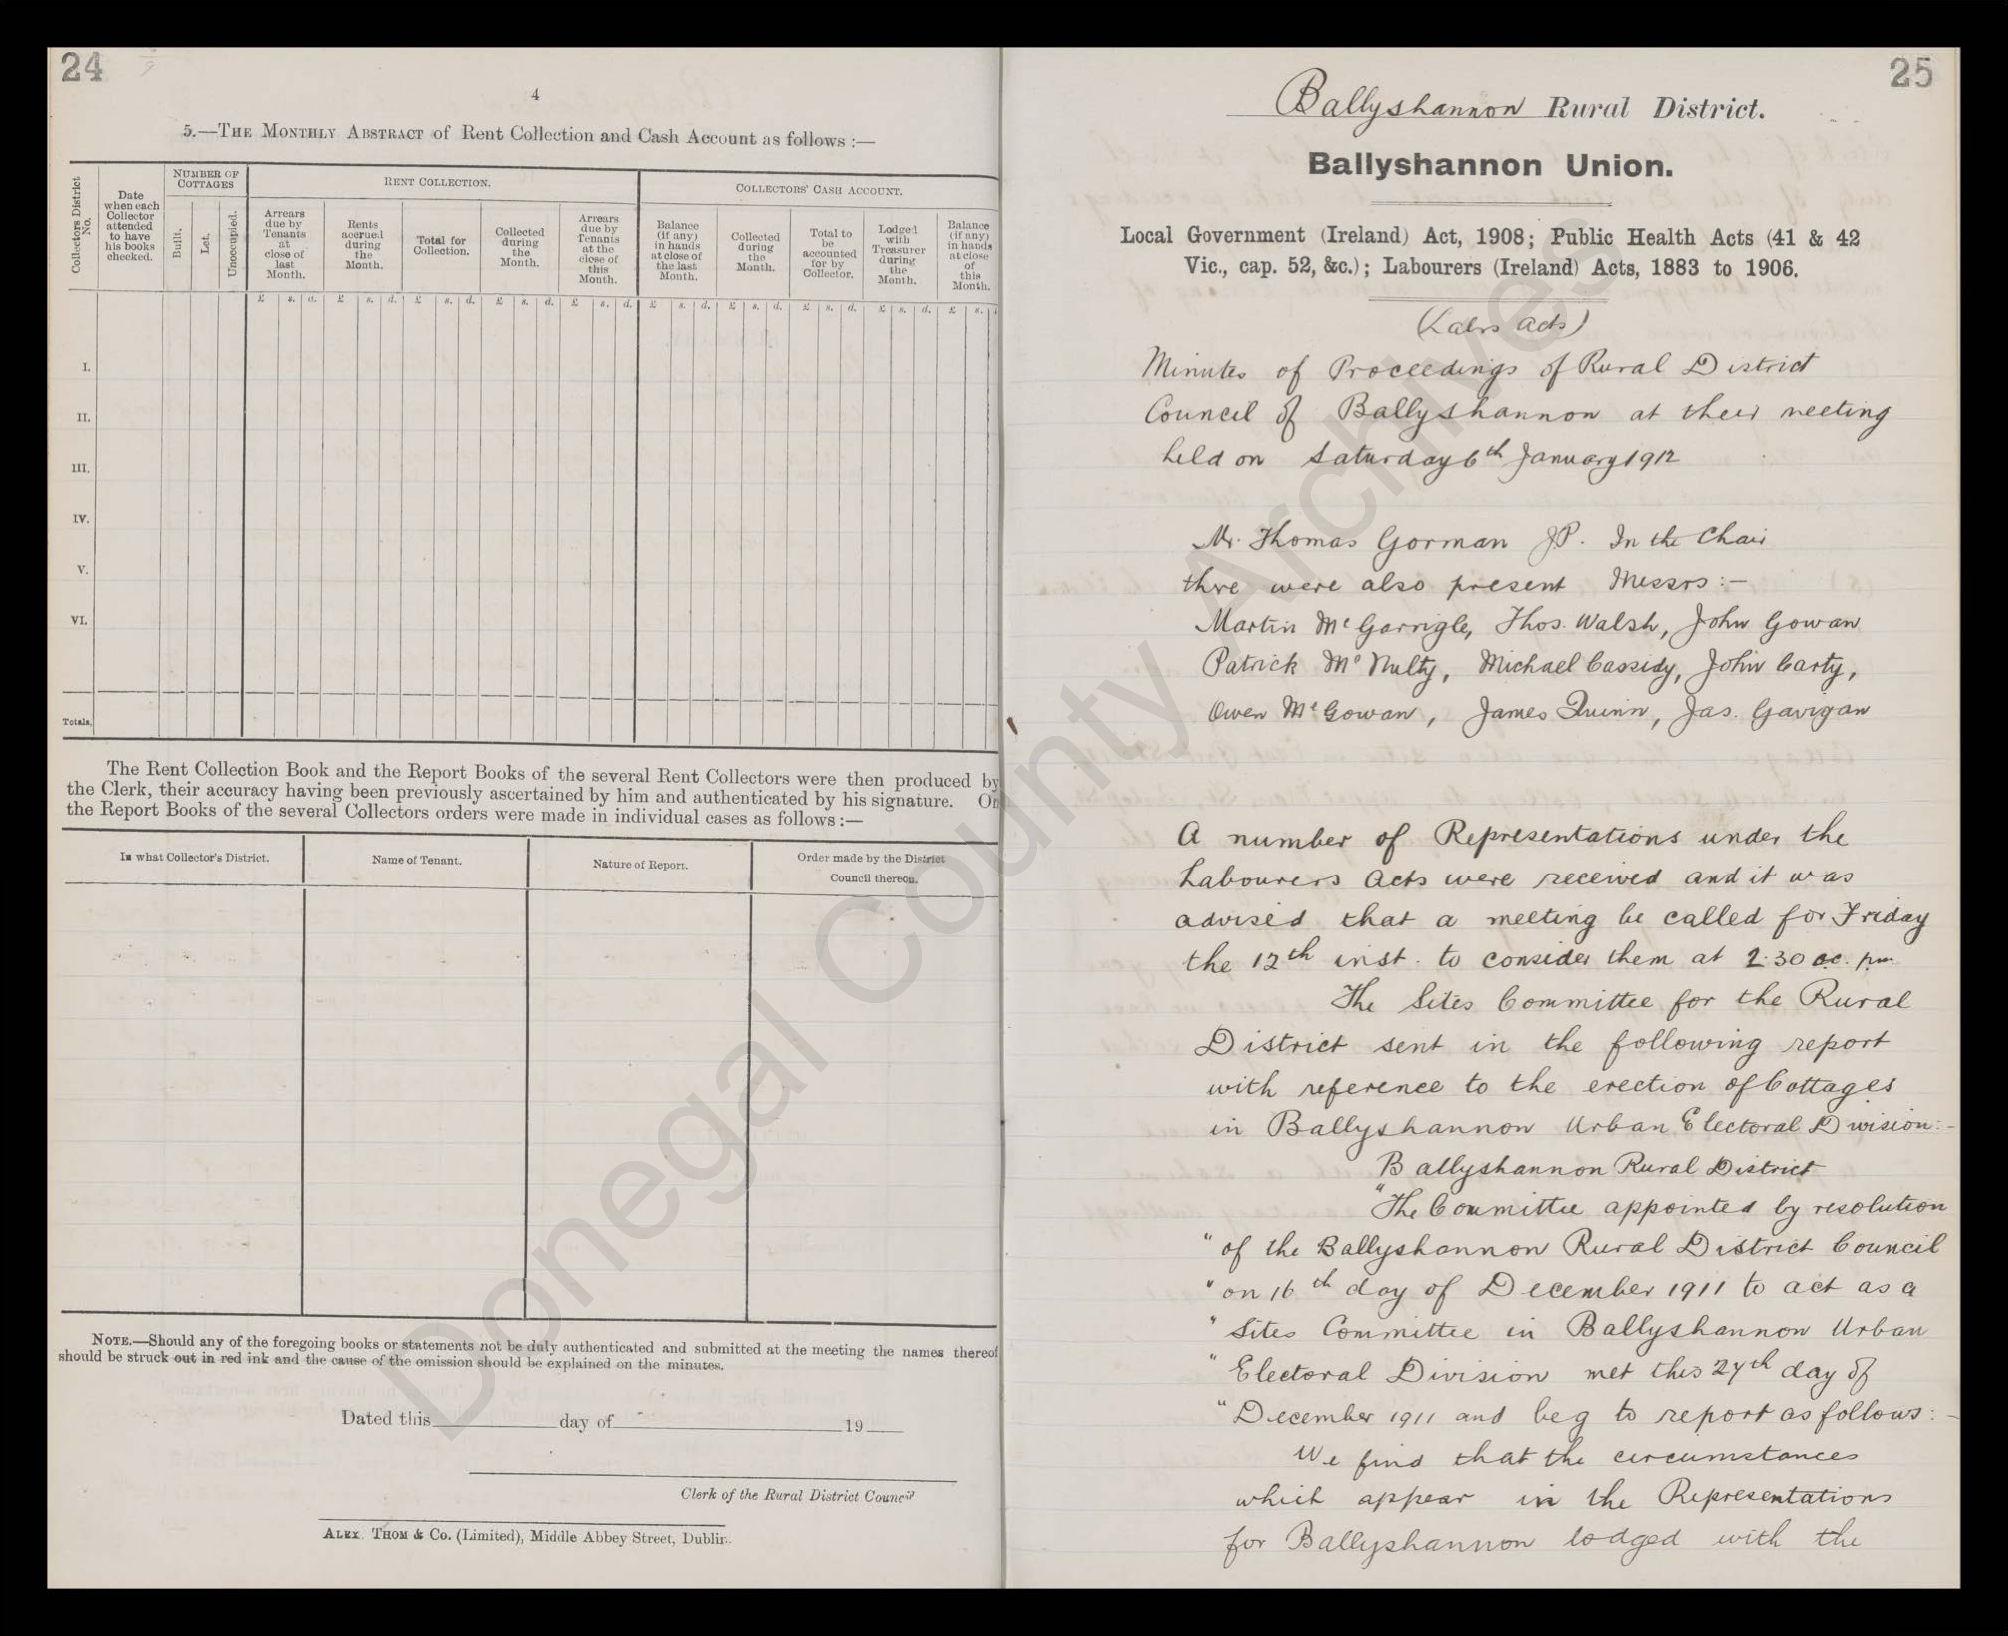 24
4
5.—THE MONTHLY ABSTRACT of Rent Collection and Cash Account as follows :—
Collectors District No.
Date when each Collector attended to have his books checked.
NUMBER OF COTTAGES
Built.
Let.
Unoccupied.
RENT COLLECTION.
Arrears due by Tenants at close of last Month.
Rents accrued during the Month.
Total for Collection.
Collected during the Month.
Arrears due by Tenants at the close of this Month.
COLLECTORS' CASH ACCOUNT.
Balance (if any) in hands at close of the last Month.
Collected during the Month.
Total to be accounted for by Collector.
Lodged with Treasurer during the Month.
Balance (if any) in hands at close of this Month.
£ s. d. £ s. d. £ s. d. £ s. d. £ s. d. £ s. d. £ s. d. £ s. d. £ s. d. £ s.
I.
II.
III.
IV.
V.
VI.
Totals.
The Rent Collection Book and the Report Books of the several Rent Collectors were then produced by
the Clerk, their accuracy having been previously ascertained by him and authenticated by his signature. On
the Report Books of the several Collectors orders were made in individual cases as follows :—
In what Collector's District.
Name of Tenant.
Nature of Report.
Order made by the District Council thereon.
NOTE.—Should any of the foregoing books or statements not be duly authenticated and submitted at the meeting the names thereof
should be struck out in red ink and the cause of the omission should be explained on the minutes.
Dated this day of 19
Clerk of the Rural District Council
ALEX. THOM & Co. (Limited), Middle Abbey Street, Dublin.
25
Ballyshannon Rural District.
Ballyshannon Union.
Local Government (Ireland) Act, 1908; Public Health Acts (41 & 42
Vic., cap. 52, &c.); Labourers (Ireland) Acts, 1883 to 1906.
(Labrs Acts)
Minutes of Proceedings of Rural District
Council of Ballyshannon at their meeting
held on Saturday 6th January 1912
Mr. Thomas Gorman JP. In the Chair
thre were also present Messrs :-
Martin McGarrigle, Thos. Walsh, John Gowan
Patrick McNulty, Michael Cassidy, John Carty,
Owen McGowan, James Quinn, Jas. Gavigan
A number of Representations under the
Labourers Acts were received and it was
advised that a meeting be called for Friday
the 12th inst. to consider them at 2.30 o.c. pm
The Sites Committee for the Rural
District sent in the following report
with reference to the erection of Cottages
in Ballyshannon Urban Electoral Division:-
Ballyshannon Rural District
"The Committee appointed by resolution
" of the Ballyshannon Rural District Council
" on 16th day of December 1911 to act as a
" Sites Committee in Ballyshannon Urban
" Electoral Division met this 27th day of
" December 1911 and beg to report as follows:-
We find that the circumstances
which appear in the Representations
for Ballyshannon lodged with the
Donegal County Archives